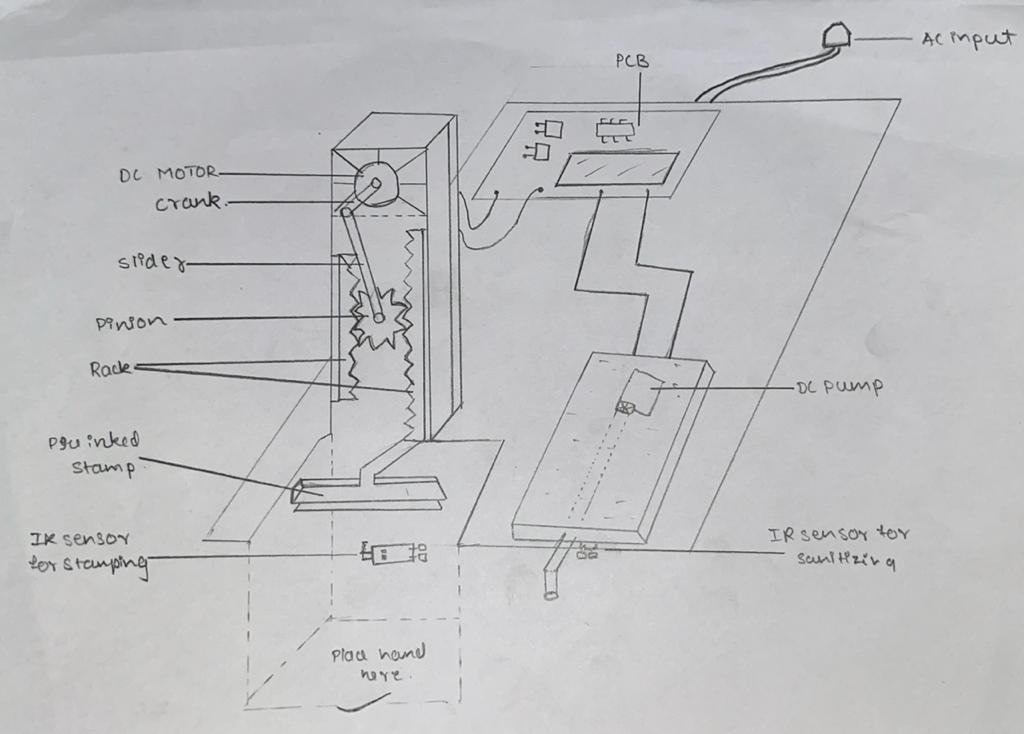 AC input
PCB
DC MOTOR
crank
slider
Pinion
Rack
Pre inked
stamp
DC pump
IR sensor
for stamping
IR sensor for
sanitizing
Place hand
here.